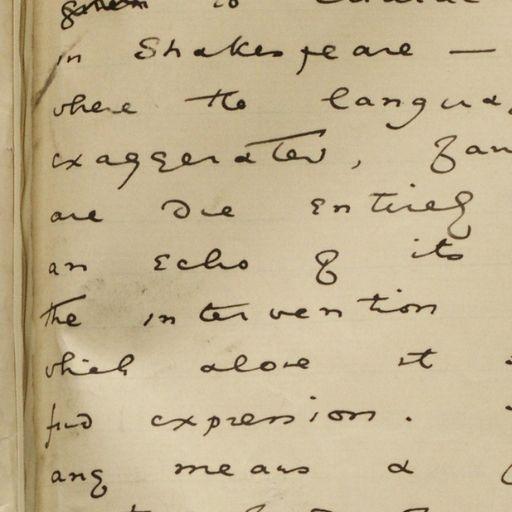 in Shakespeare —
where the langua
exaggerated, fan
are due entirely
an echo of its
the intervention
which alone it
find expression.
any means a